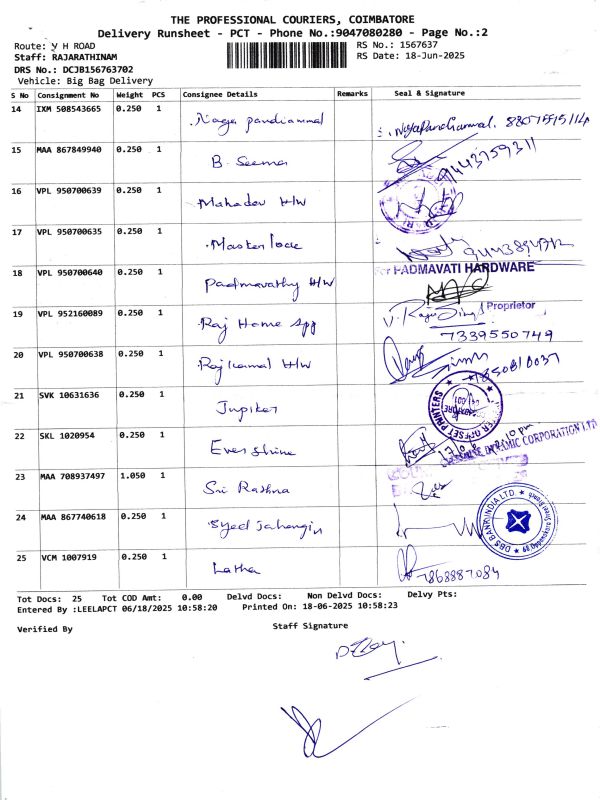 THE PROFESSIONAL COURIERS, COIMBATORE
Delivery Runsheet - PCT - Phone No.:9047080280 - Page No.:2
Route: V H ROAD RS No.: 1567637
Staff: RAJARATHINAM RS Date: 18-Jun-2025
DRS No.: DCJB156763702
Vehicle: Big Bag Delivery
S No Consignment No Weight PCS Consignee Details Remarks Seal & Signature
14 IXM 508543665 0.250 1 Naga pandiammal
15 MAA 867849940 0.250 1 B. Seema 9443759311
16 VPL 950700639 0.250 1 Mahadev H/W
17 VPL 950700635 0.250 1 Master lock
18 VPL 950700640 0.250 1 Padmavathy H/W For PADMAVATI HARDWARE
Proprietor
19 VPL 952160089 0.250 1 Raj Home App V. Raju Singh
7339550749
20 VPL 950700638 0.250 1 Raj Kamal H/W
21 SVK 10631636 0.250 1 Jupiter OFFSET PRINTERS
22 SKL 1020954 0.250 1 Ever Shine DYNAMIC CORPORATION LTD
23 MAA 708937497 1.050 1 Sri Rathna
24 MAA 867740618 0.250 1 Syed Jahangir DBS BANK INDIA LTD
25 VCM 1007919 0.250 1 Latha 7868887084
Tot Docs: 25 Tot COD Amt: 0.00 Delvd Docs: Non Delvd Docs: Delvy Pts:
Entered By :LEELAPCT 06/18/2025 10:58:20 Printed On: 18-06-2025 10:58:23
Verified By Staff Signature